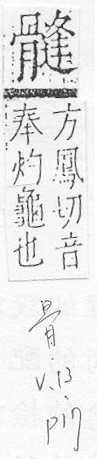 方鳳切音
奉灼龜也
骨.
v.13.